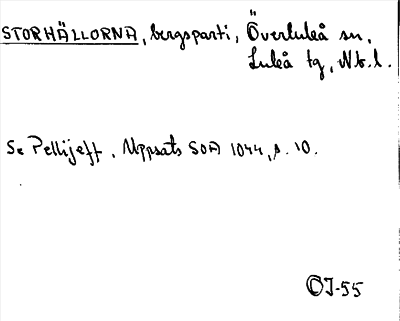 STORHÄLLORNA, bergsparti, Överluleå sn,
Luleå tg, Nb. l.
Se Pellijeff, Uppsats SOA 1044, s. 10.
OJ-55